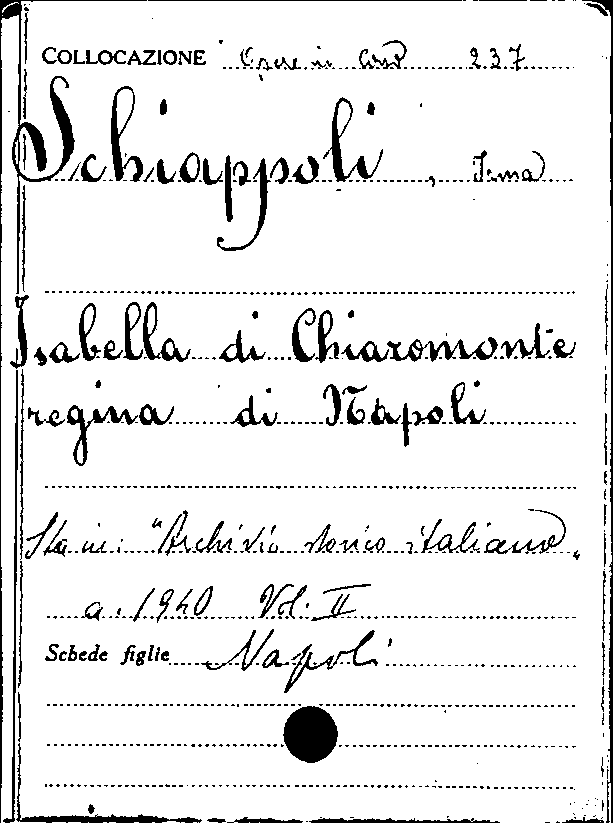 COLLOCAZIONE Opere in Cons 237
Schiappoli, Irma
Isabella di Chiaromonte
regina di Napoli
Sta in: "Archivio storico italiano„
a. 1940 Vol. II
Schede figlie Napoli